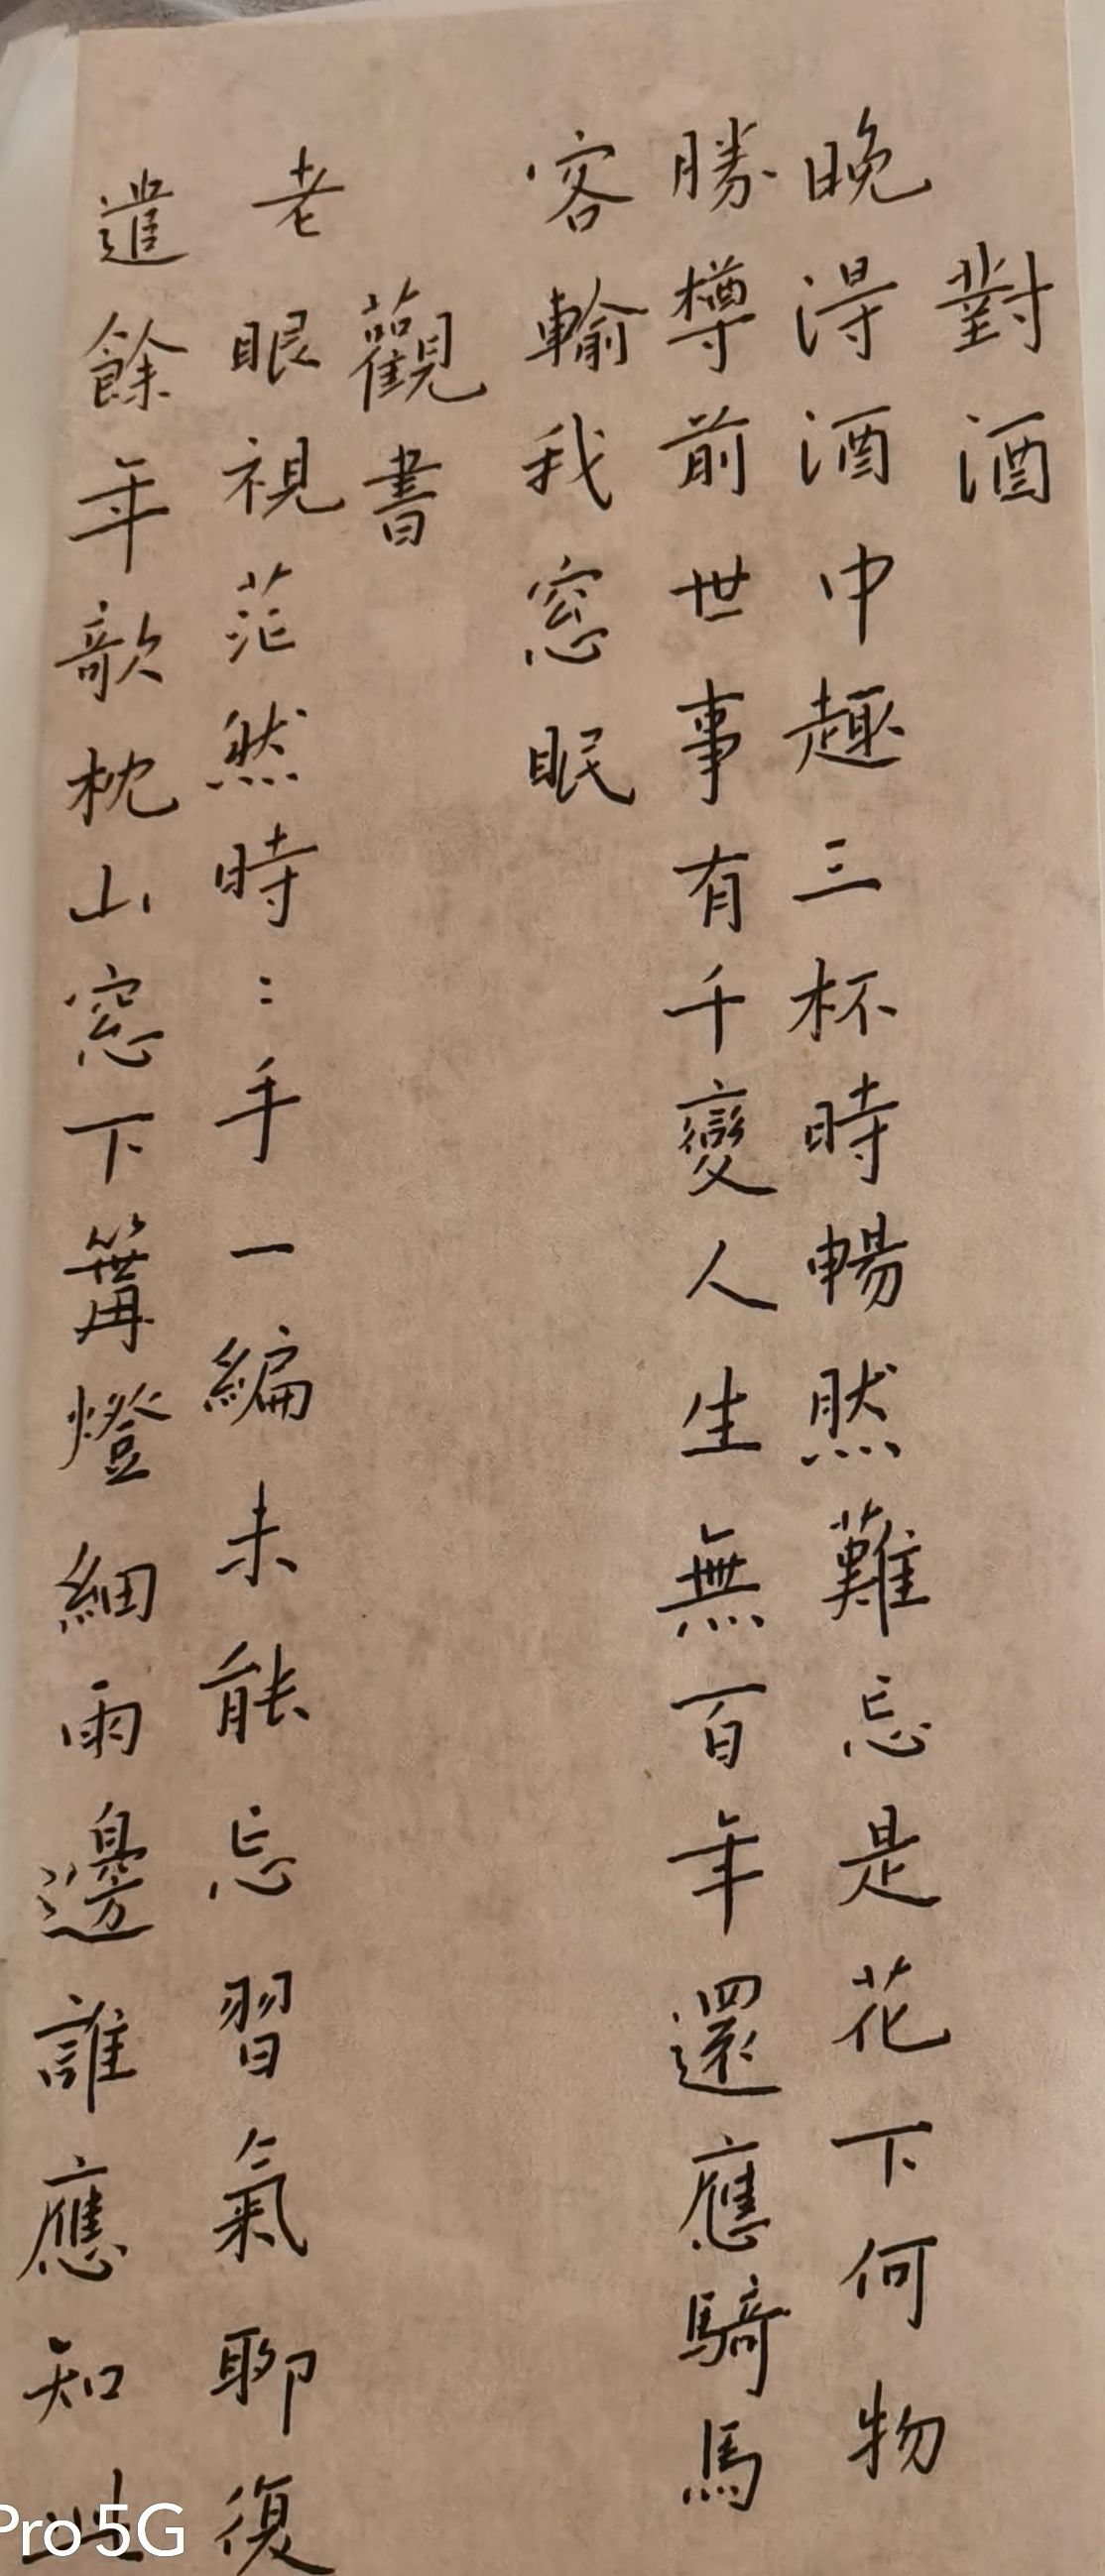 對酒
晚得酒中趣三杯時暢然難忘是花下何物
勝樽前世事有千變人生無百年還應騎馬
客輸我窓眠
觀書
老眼視茫然時：手一編未能忘習氣聊復
遣餘年欹枕山窓下篝燈細雨邊誰應知此
Pro 5G